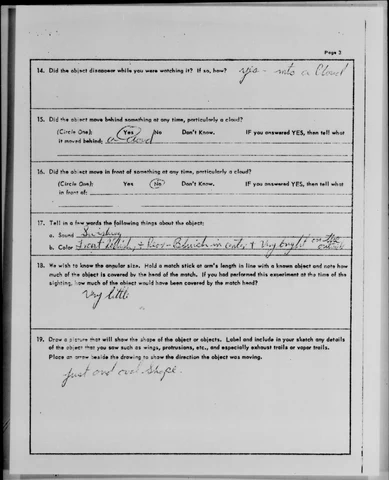 Page 3
14. Did the object disappear while you were watching it? If so, how? yes - into a Cloud
15. Did the object move behind something at any time, particularly a cloud?
(Circle One): Yes No Don't Know. IF you answered YES, then tell what
it moved behind: a Cloud
16. Did the object move in front of something at any time, particularly a cloud?
(Circle One): Yes No Don't Know. IF you answered YES, then tell what
in front of:
17. Tell in a few words the following things about the object:
a. Sound
b. Color Front + Rear - Bluish in center + Very bright on the
outside
18. We wish to know the angular size. Hold a match stick at arm's length in line with a known object and note how
much of the object is covered by the head of the match. If you had performed this experiment at the time of the
sighting, how much of the object would have been covered by the match head?
Very little
19. Draw a picture that will show the shape of the object or objects. Label and include in your sketch any details
of the object that you saw such as wings, protrusions, etc., and especially exhaust trails or vapor trails.
Place an arrow beside the drawing to show the direction the object was moving.
just and oval shape.